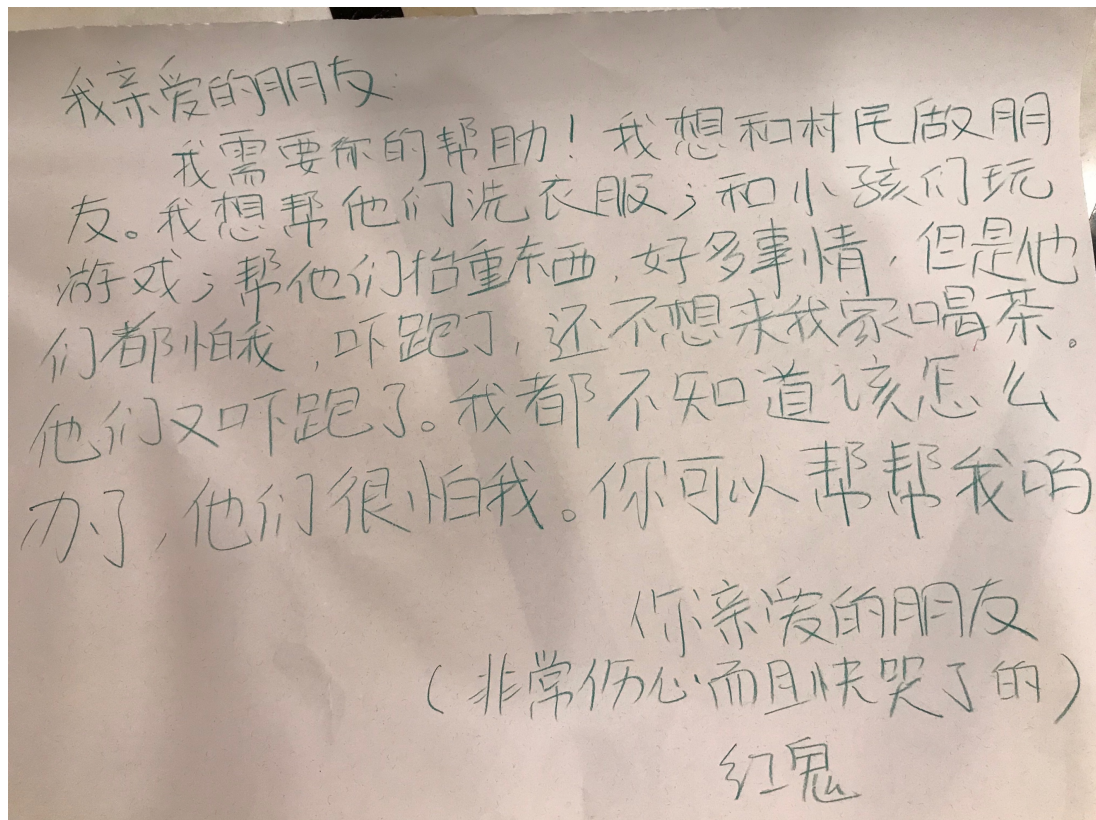 我亲爱的朋友
我需要你的帮助！我想和村民做朋
友。我想帮他们洗衣服；和小孩们玩
游戏；帮他们抬重东西，好多事情，但是他
们都怕我，吓跑了，还不想来我家喝茶。
他们又吓跑了。我都不知道该怎么
办了，他们很怕我。你可以帮帮我吗
你亲爱的朋友
（非常伤心而且快哭了的）
红鬼